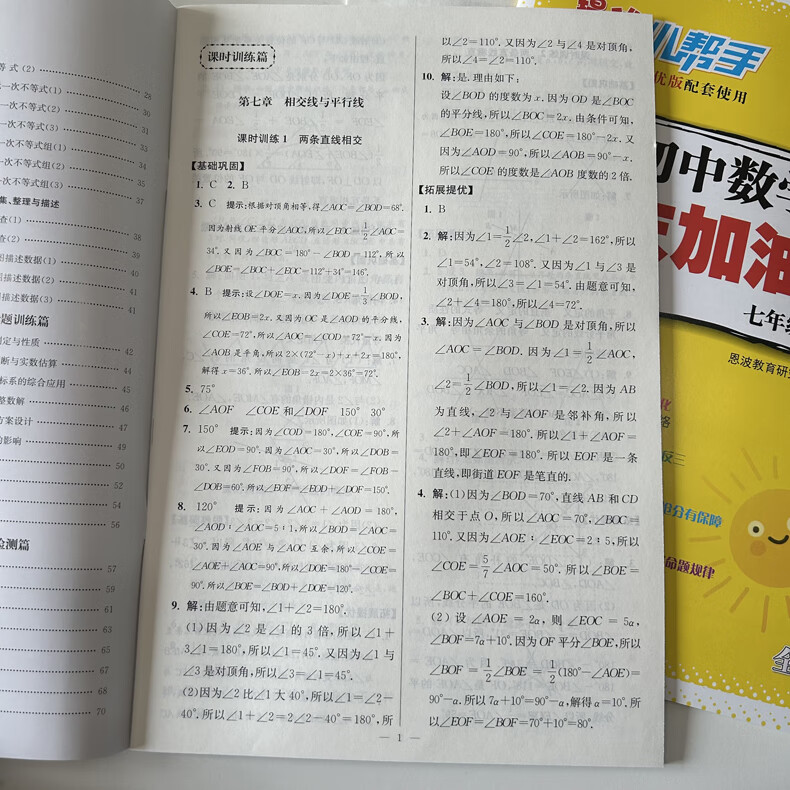 等 式 (2) 28
一次不等式(1)
一次不等式(2) 32
一次不等式(3)
一次不等式组(1) 34
一次不等式组(2) 35
一次不等式组(3) 37
集、整理与描述
查(1) 38
查(2) 39
描述数据(1) 40
图描述数据(2) 41
图描述数据(3) 41
题训练篇
判定与性质 42
断与实数估算 44
标系的综合应用 45
整数解 46
方案设计 47
的影响 49
50
52
54
56
检测篇
57
59
60
61
63
65
67
68
70
课时训练篇
第七章 相交线与平行线
课时训练1 两条直线相交
【基础巩固】
1. C 2. B
3. C 提示:根据对顶角相等,得∠AOC=∠BOD=68°.
因为射线OE平分∠AOC,所以∠EOC=1/2∠AOC=
34°. 又因为∠BOC=180°-∠BOD=112°,所以
∠BOE=∠BOC+∠EOC=112°+34°=146°.
4. B 提示:设∠DOE=x. 因为∠DOE=1/3∠BOD,
所以∠EOB=2x. 又因为OC是∠AOD的平分线,
∠COE=72°,所以∠AOC=∠COD=72°-x. 因为
∠AOB是平角,所以2×(72°-x)+x+2x=180°,
解得x=36°.所以∠EOB=2x=2×36°=72°.
5. 75°
6. ∠AOF ∠COE和∠DOF 150° 30°
7. 150° 提示:因为∠COD=180°,∠COE=90°,所
以∠EOD=90°. 因为∠AOC=30°,所以∠DOB=
30°. 又因为∠FOB=90°,所以∠DOF=∠FOB-
∠DOB=60°. 所以∠EOF=∠EOD+∠DOF=150°.
8. 120° 提示:因为∠AOC+∠AOD=180°,
∠AOD∶∠AOC=5∶1,所以∠BOD=∠AOC=
30°. 因为∠AOE与∠AOC互余,所以∠COE=
∠AOE+∠AOC=90°.所以∠DOE=180°-∠COE=
90°.所以∠BOE=∠BOD+∠DOE=120°.
9. 解:由题意可知,∠1+∠2=180°.
(1)因为∠2是∠1的3倍,所以∠1+
3∠1=180°,所以∠1=45°. 又因为∠1与
∠3是对顶角,所以∠3=∠1=45°.
(2)因为∠2比∠1大40°,所以∠1=∠2-
40°. 所以∠1+∠2=2∠2-40°=180°,所
以∠2=110°. 又因为∠2与∠4是对顶角,
所以∠4=∠2=110°.
10. 解:是. 理由如下:
设∠BOD的度数为x. 因为OD是∠BOC
的平分线,所以∠BOC=2x. 由条件可知,
∠BOE=180°,所以∠COE=180°-2x. 又
因为∠AOD=90°,所以∠AOB=90°-x.
所以∠COE的度数是∠AOB度数的2倍.
【拓展提优】
1. B
2. 解:因为∠1=1/2∠2,∠1+∠2=162°,所以
∠1=54°,∠2=108°. 又因为∠1与∠3是
对顶角,所以∠3=∠1=54°. 由题意可知,
∠2+∠4=180°,所以∠4=72°.
3. 解:因为∠AOC与∠BOD是对顶角,所以
∠AOC=∠BOD. 因为∠1=1/2∠AOC,
∠2=1/2∠BOD,所以∠1=∠2. 因为AB
为直线,∠2与∠AOF是邻补角,所以
∠2+∠AOF=180°. 所以∠1+∠AOF=
180°,即∠EOF=180°. 所以EOF是一条
直线,即街道EOF是笔直的.
4. 解:(1)因为∠BOD=70°,直线AB和CD
相交于点O,所以∠AOC=70°,∠BOC=
110°. 又因为∠AOE∶∠EOC=2∶5,所以
∠COE=5/7∠AOC=50°. 所以∠BOE=
∠BOC+∠COE=160°.
(2)设∠AOE=2α,则∠EOC=5α,
∠BOF=7α+10°. 因为OF平分∠BOE,所以
∠BOF=1/2∠BOE=1/2(180°-∠AOE)=
90°-α. 所以7α+10°=90°-α,解得α=10°. 所
以∠EOF=∠BOF=70°+10°=80°.
— 1 —
小帮手
优版配套使用
初中数学
加油
七年级
恩波教育研究
分有保障
命题规律